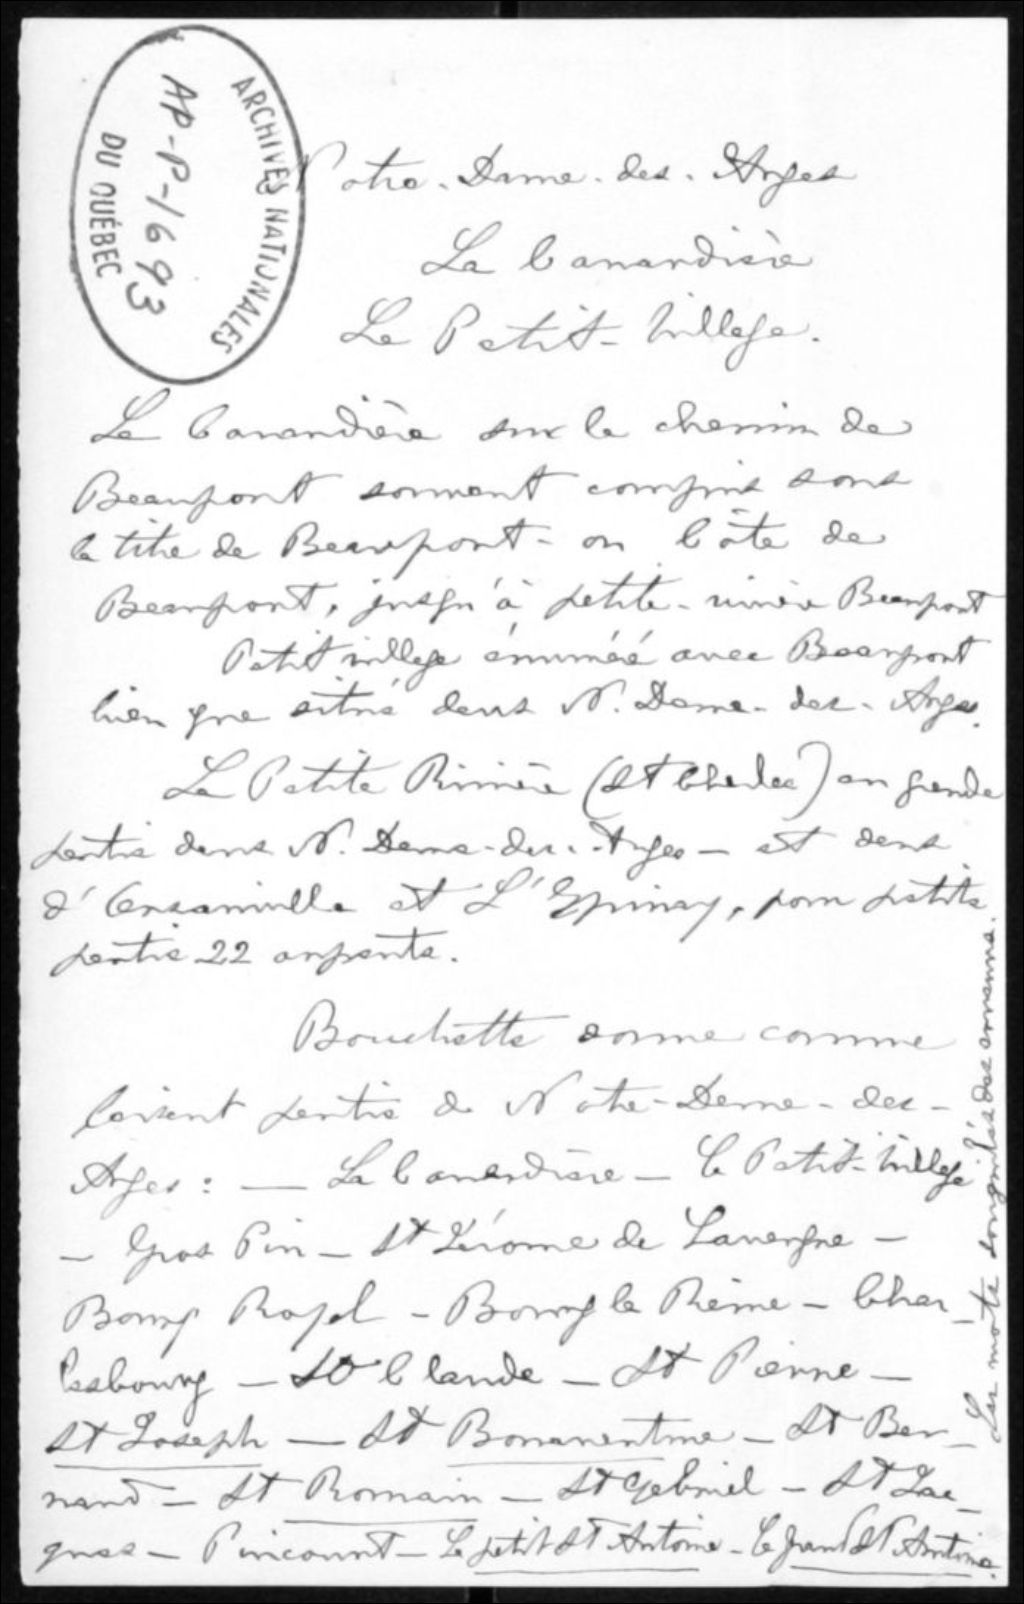 ARCHIVES NATIONALES
AP-P-1693
DU QUÉBEC
Notre-Dame-des-Anges
La Canardière
Le Petit-Village.
La Canardière sur le chemin de
Beauport souvent compris sous
le titre de Beauport - ou Côte de
Beauport, jusqu'à petite-rivière Beauport
Petit village énuméré avec Beauport
bien que situé dans N. Dame-des-Anges.
La Petite Rivière (St Charles) en grande
partie dans N. Dame-des-Anges — et dans
d'Orsainville et L'Epinay, pour petite
partie 22 arpents.
Bouchette donne comme
faisant partie de Notre-Dame-des-
Anges : — La Canardière — Le Petit-Village
— Gros Pin — St Jérome de Lavergne —
Bourg Royal — Bourg la Reine — Char-
lesbourg — St Claude — St Pierre —
St Joseph — St Bonaventure — St Ber-
nard — St Romain — St Gabriel — St Jac-
ques — Pincourt — Le petit St Antoine - le grand St Antoine.
Les mots soulignés des anciens.